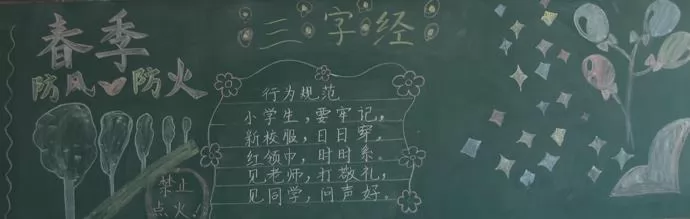 春季
防风防火
禁止
点火
三字经
行为规范
小学生，要牢记，
新校服，日日穿，
红领巾，时时系。
见老师，打敬礼，
见同学，问声好。